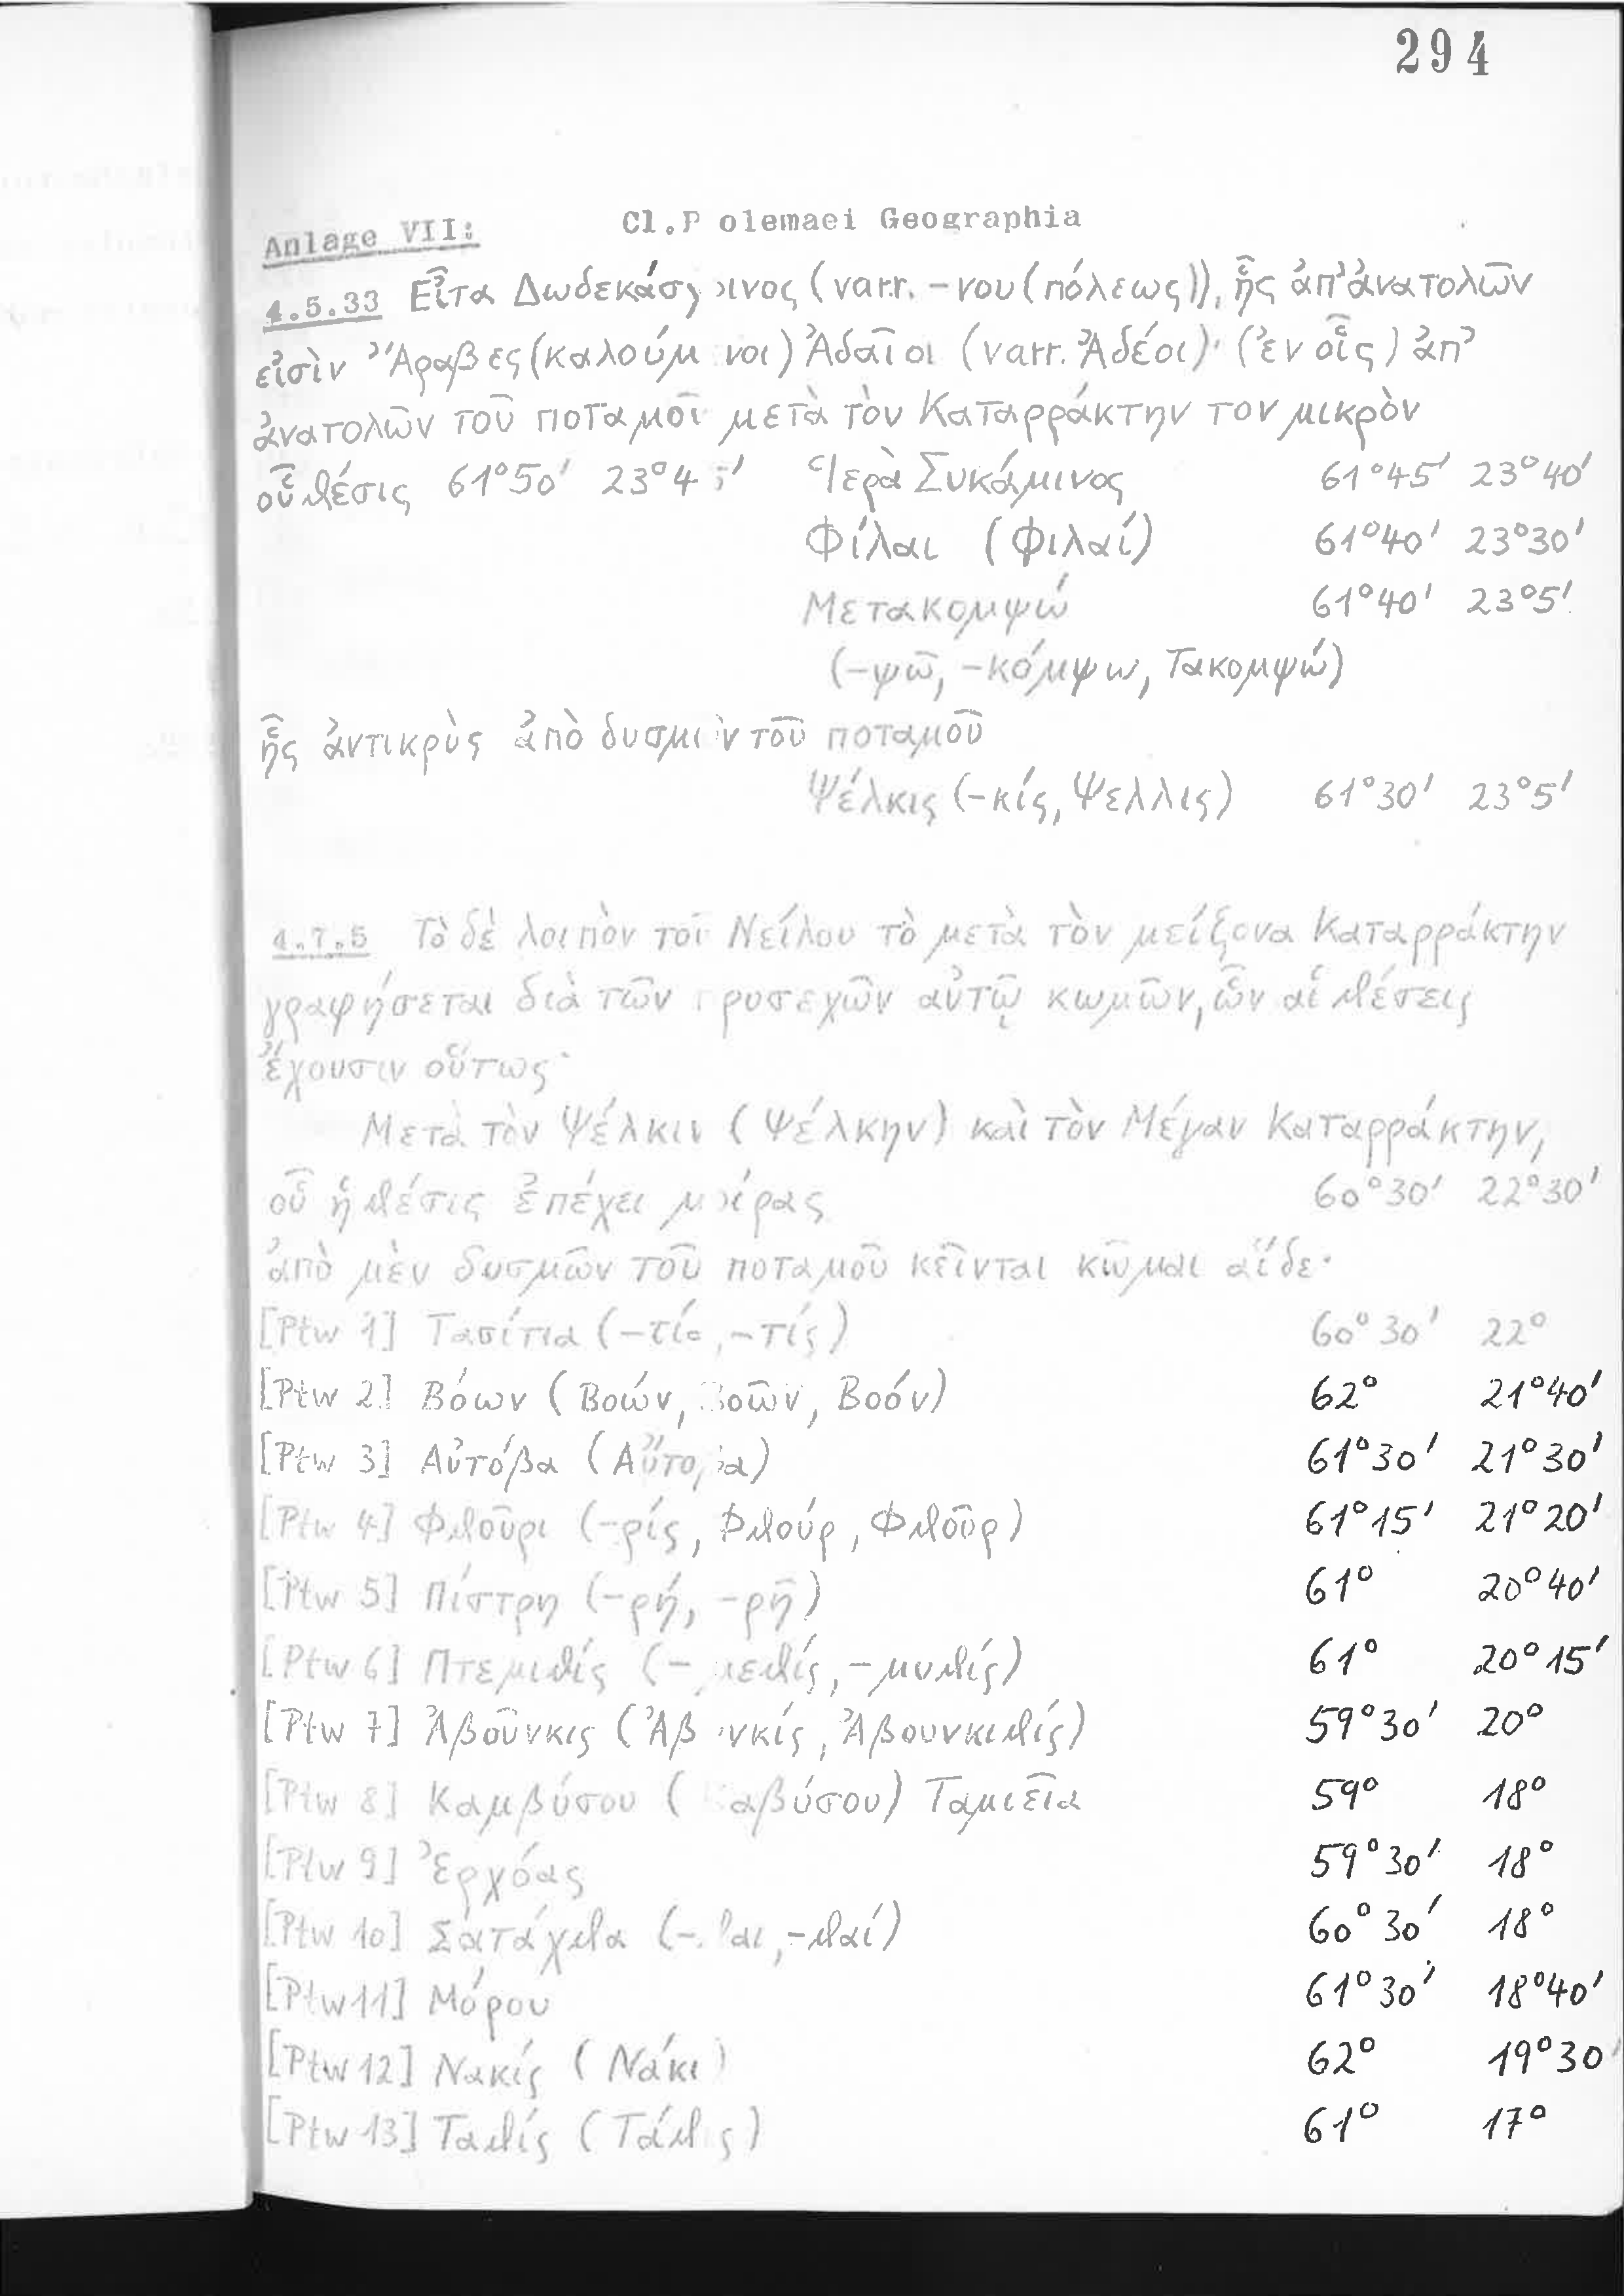 294
Anlage VII: Cl.P olemaei Geographia
4.5.33 Εἶτα Δωδεκάσχοινος (varr. –νου(πόλεως)), ἧς ἀπ᾽ἀνατολῶν
εἰσὶν Ἄραβες(καλούμ νοι) Ἀδαῖοι (varr. Ἀδέοι)· (ἐν οἷς) ἀπ᾽
ἀνατολῶν τοῦ ποταμοῦ μετὰ τὸν Καταρράκτην τον μικρὸν
οὗ θέσις 61°50' 23°4 ' Ἱερὰ Συκάμινος 61°45' 23°40'
Φίλαι (Φιλαί) 61°40' 23°30'
Μετακομψώ 61°40' 23°5'
(–ψῶ, –κόμψω, Τακομψώ)
ἧς ἀντικρὺς ἀπὸ δυσμῶν τοῦ ποταμοῦ
Ψέλκις (–κίς, Ψελλις) 61°30' 23°5'
4.7.5 Τὸ δὲ λοιπὸν τοῦ Νείλου τὸ μετὰ τὸν μείζονα Καταρράκτην
γραφήσεται διὰ τῶν προσεχῶν αὐτῷ κωμῶν, ὧν αἱ θέσεις
ἔχουσιν οὕτως·
Μετὰ τὸν Ψέλκιν (Ψέλκην) καὶ τὸν Μέγαν Καταρράκτην,
οὗ ἡ θέσις ἐπέχει μοίρας 60°30' 22°30'
ἀπὸ μὲν δυσμῶν τοῦ ποταμοῦ κεῖνται κῶμαι αἵδε·
[Ptw 1] Τασίτια (–τία, –τίς) 60°30' 22°
[Ptw 2] Βόων (Βοών, Βοῶν, Βοόν) 62° 21°40'
[Ptw 3] Αὐτόβα (Αὔτοβα) 61°30' 21°30'
[Ptw 4] Φθοῦρι (–ρίς, Φθούρ, Φθοῦρ) 61°15' 21°20'
[Ptw 5] Πίστρη (–ρή, –ρῆ) 61° 20°40'
[Ptw 6] Πτεμιθίς (–μεθίς, –μυθίς) 61° 20°15'
[Ptw 7] Ἀβοῦνκις (Ἀβ νκίς, Ἀβουνκιθίς) 59°30' 20°
[Ptw 8] Καμβύσου ( αβύσου) Ταμιεῖα 59° 18°
[Ptw 9] Ἐρχόας 59°30' 18°
[Ptw 10] Σατάχθα (–θαι, –θαί) 60°30' 18°
[Ptw 11] Μόρου 61°30' 18°40'
[Ptw 12] Νακίς (Νάκι ) 62° 19°30'
[Ptw 13] Ταθίς (Τάθις) 61° 17°